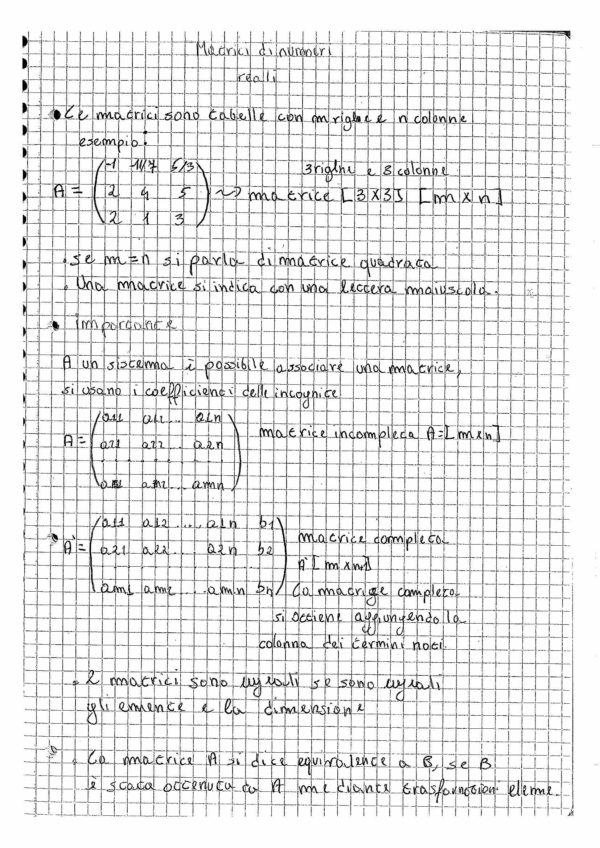 Matrici di numeri
reali
• Le matrici sono tabelle con m righe e n colonne
esempio:
3 righe e 3 colonne
A = (-1 11/7 5/3
2 4 5
2 1 3) ~> matrice [3x3] [m x n]
. se m=n si parla di matrice quadrata
. Una matrice si indica con una lettera maiuscola.
• importante
A un sistema è possibile associare una matrice,
si usano i coefficienti delle incognite
A = (a11 a12 ... a1n
a21 a22 ... a2n
...
am1 am2 ... amn) matrice incompleta A=[m x n]
A' = (a11 a12 ... a1n b1
a21 a22 ... a2n b2
...
am1 am2 ... amn bn) matrice completa
A'[m x n]
La matrice completa
si ottiene aggiungendo la
colonna dei termini noti.
. 2 matrici sono uguali se sono uguali
gli emente e la dimensione
. La matrice A si dice equivalente a B, se B
è stata ottenuta da A mediante trasformazioni eleme.